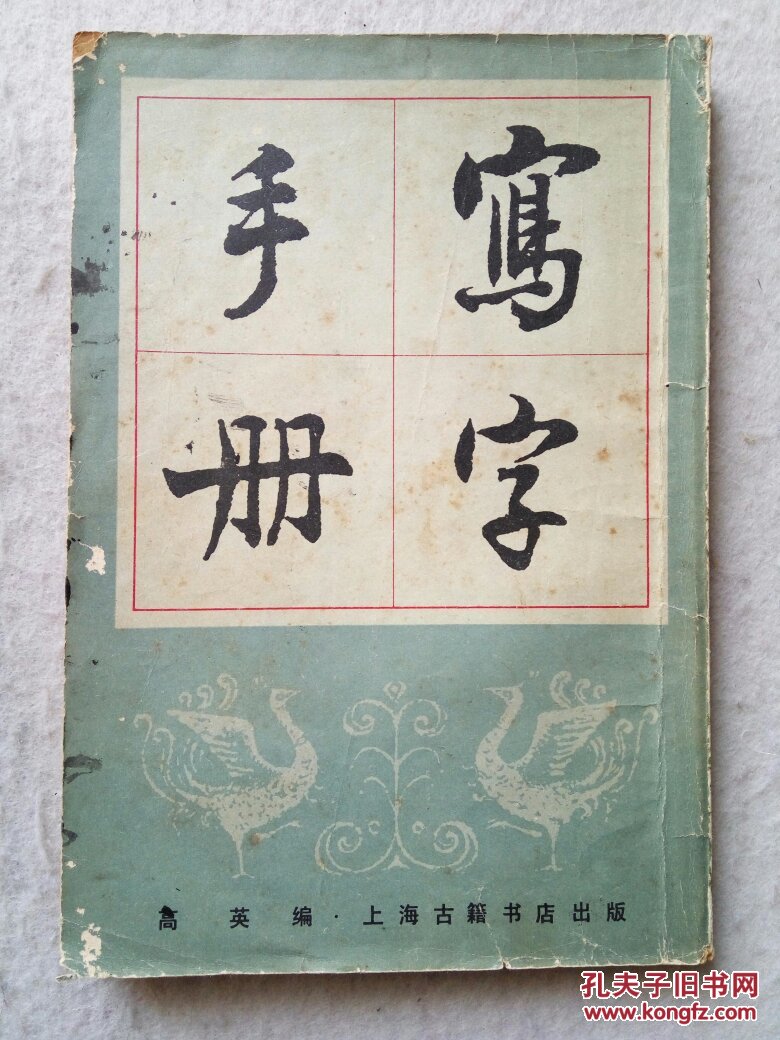 寫字
手册
高英编·上海古籍书店出版
孔夫子旧书网
www.kongfz.com